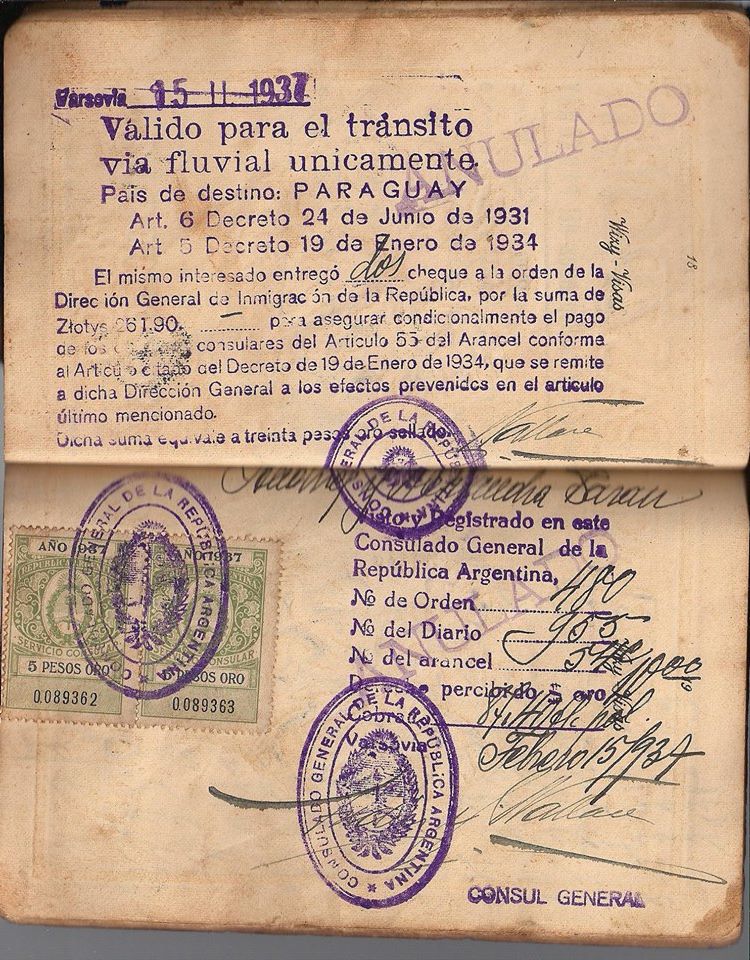 Varsovia 15 II 1937
Válido para el tránsito
via fluvial unicamente.
ANULADO
Pais de destino: PARAGUAY
Art. 6 Decreto 24 de Junio de 1931
Art. 5 Decreto 19 de Enero de 1934
El mismo interesado entregó dos cheque a la orden de la
Direc ión General de Inmigrac ón de la República, por la suma de
Złotys 261.90. — para asegurar condicionalmente el pago
de los consulares del Articulo 55 del Arancel conforme
al Artícu o c tado del Decreto de 19 de Enero de 1934, que se remite
a dicha Dirección General a los efectos prevenidos en el articulo
último mencionado.
Dicha suma equivale a treinta pesos oro sellado.
Wallace
18
Registrado en este
Consulado General de la
República Argentina,
Nº de Orden 480
Nº del Diario 955
Nº del arancel
percibido $ oro
Cobrado
Varsovia
Febrero 15/937
Wallace
ANULADO
CONSUL GENERAL
AÑO 1937
REPUBLICA
SERVICIO CONSULAR
5 PESOS ORO
0.089362
AÑO 1937
CONSULAR
5 PESOS ORO
0.089363
CONSULADO GENERAL DE LA REPÚBLICA ARGENTINA
GENERAL DE LA REPÚBLICA ARGENTINA
CONSULADO GENERAL DE LA REPÚBLICA ARGENTINA